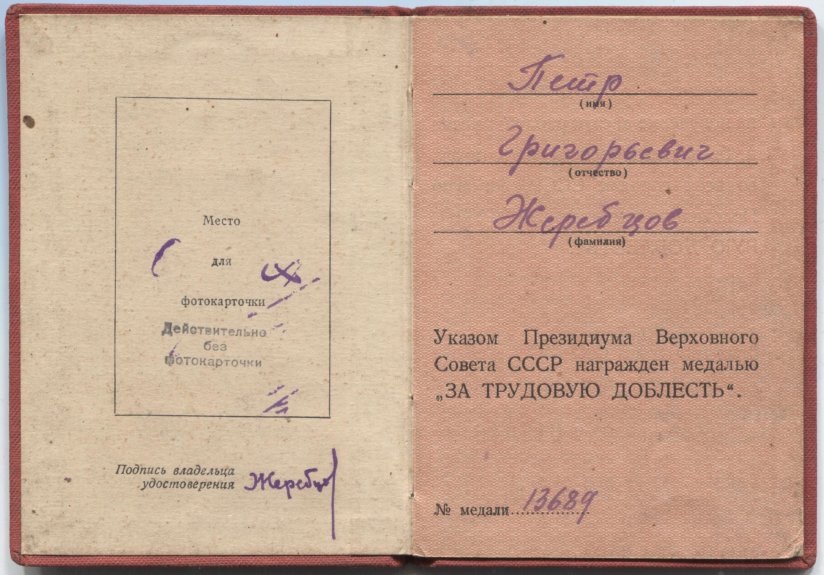 Место
для
фотокарточки
Действительно
без
фотокарточки
Подпись владельца
удостоверения Жеребцов
Петр
(имя)
Григорьевич
(отчество)
Жеребцов
(фамилия)
Указом Президиума Верховного
Совета СССР награжден медалью
„ЗА ТРУДОВУЮ ДОБЛЕСТЬ“.
№ медали 13689